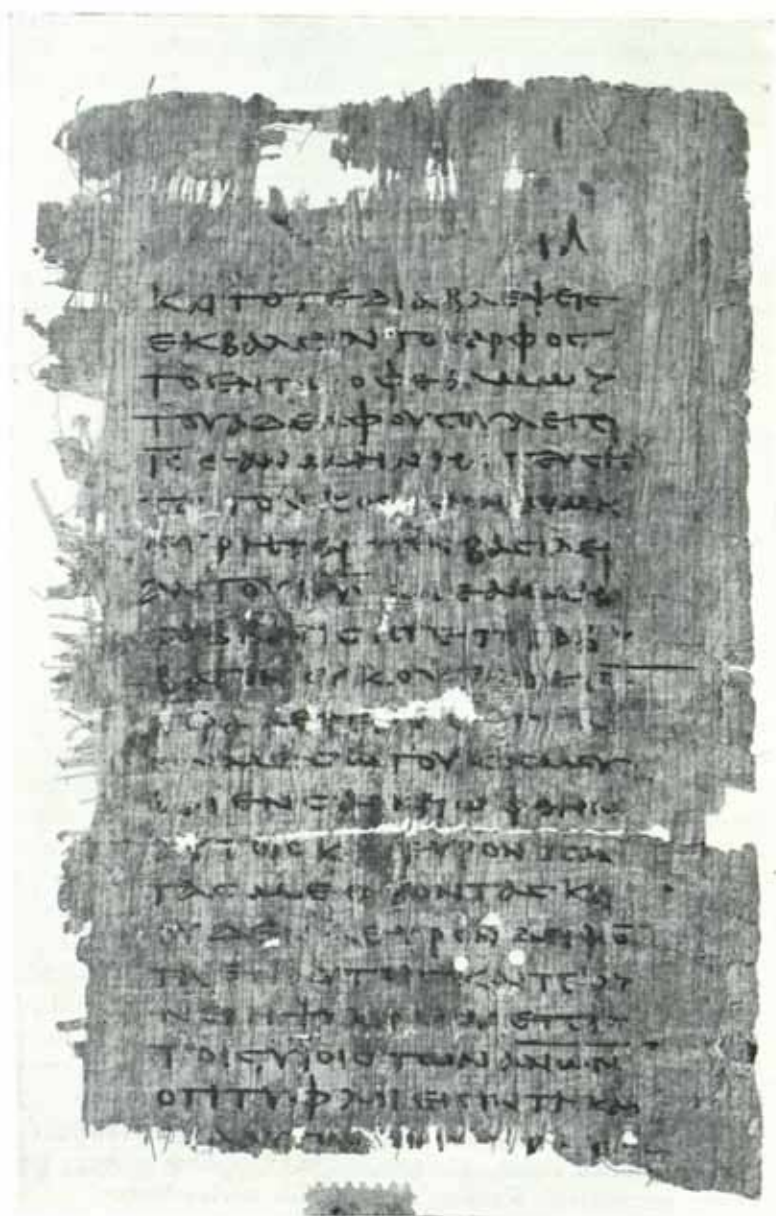 ΙΑ
ΚΑΙ ΤΟΤΕ ΔΙΑΒΛΕΨΕΙϹ
ΕΚΒΑΛΕΙΝ ΤΟ ΚΑΡΦΟϹ
ΤΟ ΕΝ ΤΩ ΟΦΘΑΛΜΩ
ΤΟΥ ΑΔΕΛΦΟΥ ϹΟΥ ΛΕΓΕΙ
Ι̅Ϲ̅ ΕΑΝ ΜΗ ΝΗϹΤΕΥϹΗ
ΤΑΙ ΤΟΝ ΚΟϹΜΟΝ ΟΥ ΜΗ
ΕΥΡΗΤΑΙ ΤΗΝ ΒΑϹΙΛΕΙ
ΑΝ ΤΟΥ Θ̅Υ̅ ΚΑΙ ΕΑΝ ΜΗ
ϹΑΒΒΑΤΙϹΗΤΕ ΤΟ ϹΑΒ
ΒΑΤΟΝ ΟΥΚ ΟΨΕϹΘΕ ΤΟ
Π̅Ρ̅Α̅ ΛΕΓΕΙ
ΜΕϹΩ ΤΟΥ ΚΟϹΜΟΥ
ΕΝ ϹΑΡΚΙ ΩΦΘΗΝ
ΑΥΤΟΙϹ ΚΑΙ ΕΥΡΟΝ ΠΑΝ
ΤΑϹ ΜΕΘΥΟΝΤΑϹ ΚΑΙ
ΟΥΔΕΝΑ ΕΥΡΟΝ ΔΕΙΨΩ
ΤΑ ΕΝ ΑΥΤΟΙϹ ΚΑΙ ΠΟ
ΝΕΙ Η ΨΥΧΗ ΜΟΥ ΕΠΙ
ΤΟΙϹ ΥΙΟΙϹ ΤΩΝ Α̅Ν̅Ω̅Ν̅
ΟΤΙ ΤΥΦΛΟΙ ΕΙϹΙΝ ΤΗ ΚΑΡ